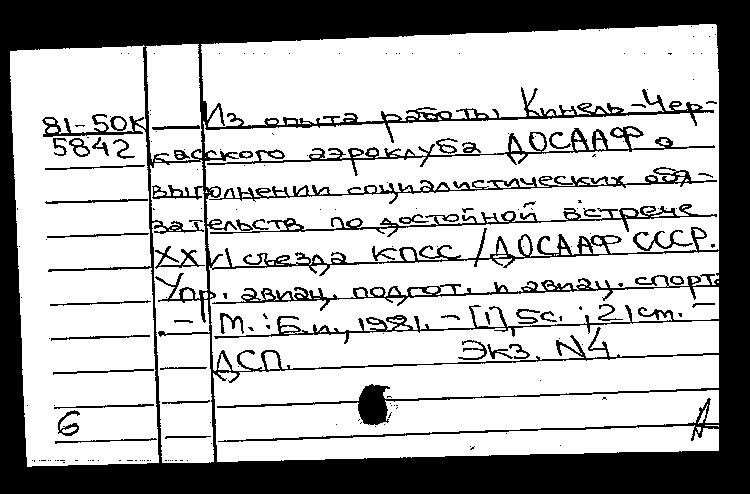 81-50К
5842
Из опыта работы Кинель-Чер-
касского аэроклуба ДОСААФ о
выполнении социалистических обя-
зательств по достойной встрече
XXVI съезда КПСС / ДОСААФ СССР.
Упр. авиац. подгот. и авиац. спорта
.- М. : Б.и., 1981. - [1], 5с. ; 21 см. -
ДСП. Экз. N4.
6 А